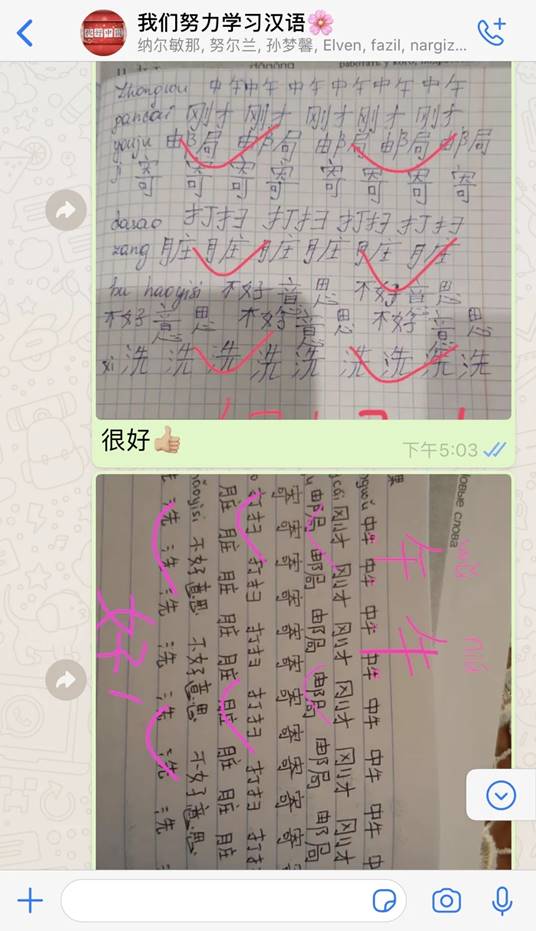 我们努力学习汉语🌸
纳尔敏那, 努尔兰, 孙梦馨, Elven, fazil, nargiz...
dǎgōng работать у кого,
zhongwu 中午 中午 中午 中午 中午 中午
gancai 刚才 刚才 刚才 刚才 刚才
youju 邮局 邮局 邮局 邮局 邮局
ji 寄 寄 寄 寄 寄 寄 寄 寄
dasao 打扫 打扫 打扫 打扫
zang 脏 脏 脏 脏 脏 脏
bu haoyisi 不好意思 不好意思
不好意思 不好意思 不好意思
xi 洗 洗 洗 洗 洗 洗 洗 洗 洗
很好👍🏼
下午5:03
овые слова
wǔ niú
午 牛
刚才 刚才 刚才 刚才 刚才 刚才
邮局 邮局 邮局 邮局 邮局 邮局
寄 寄 寄 寄 寄 寄 寄 寄
打扫 打扫 打扫 打扫 打扫
脏 脏 脏 脏 脏 脏 脏 脏
不好意思 不好意思 不好意思
洗 洗 洗 洗 洗 洗
好！